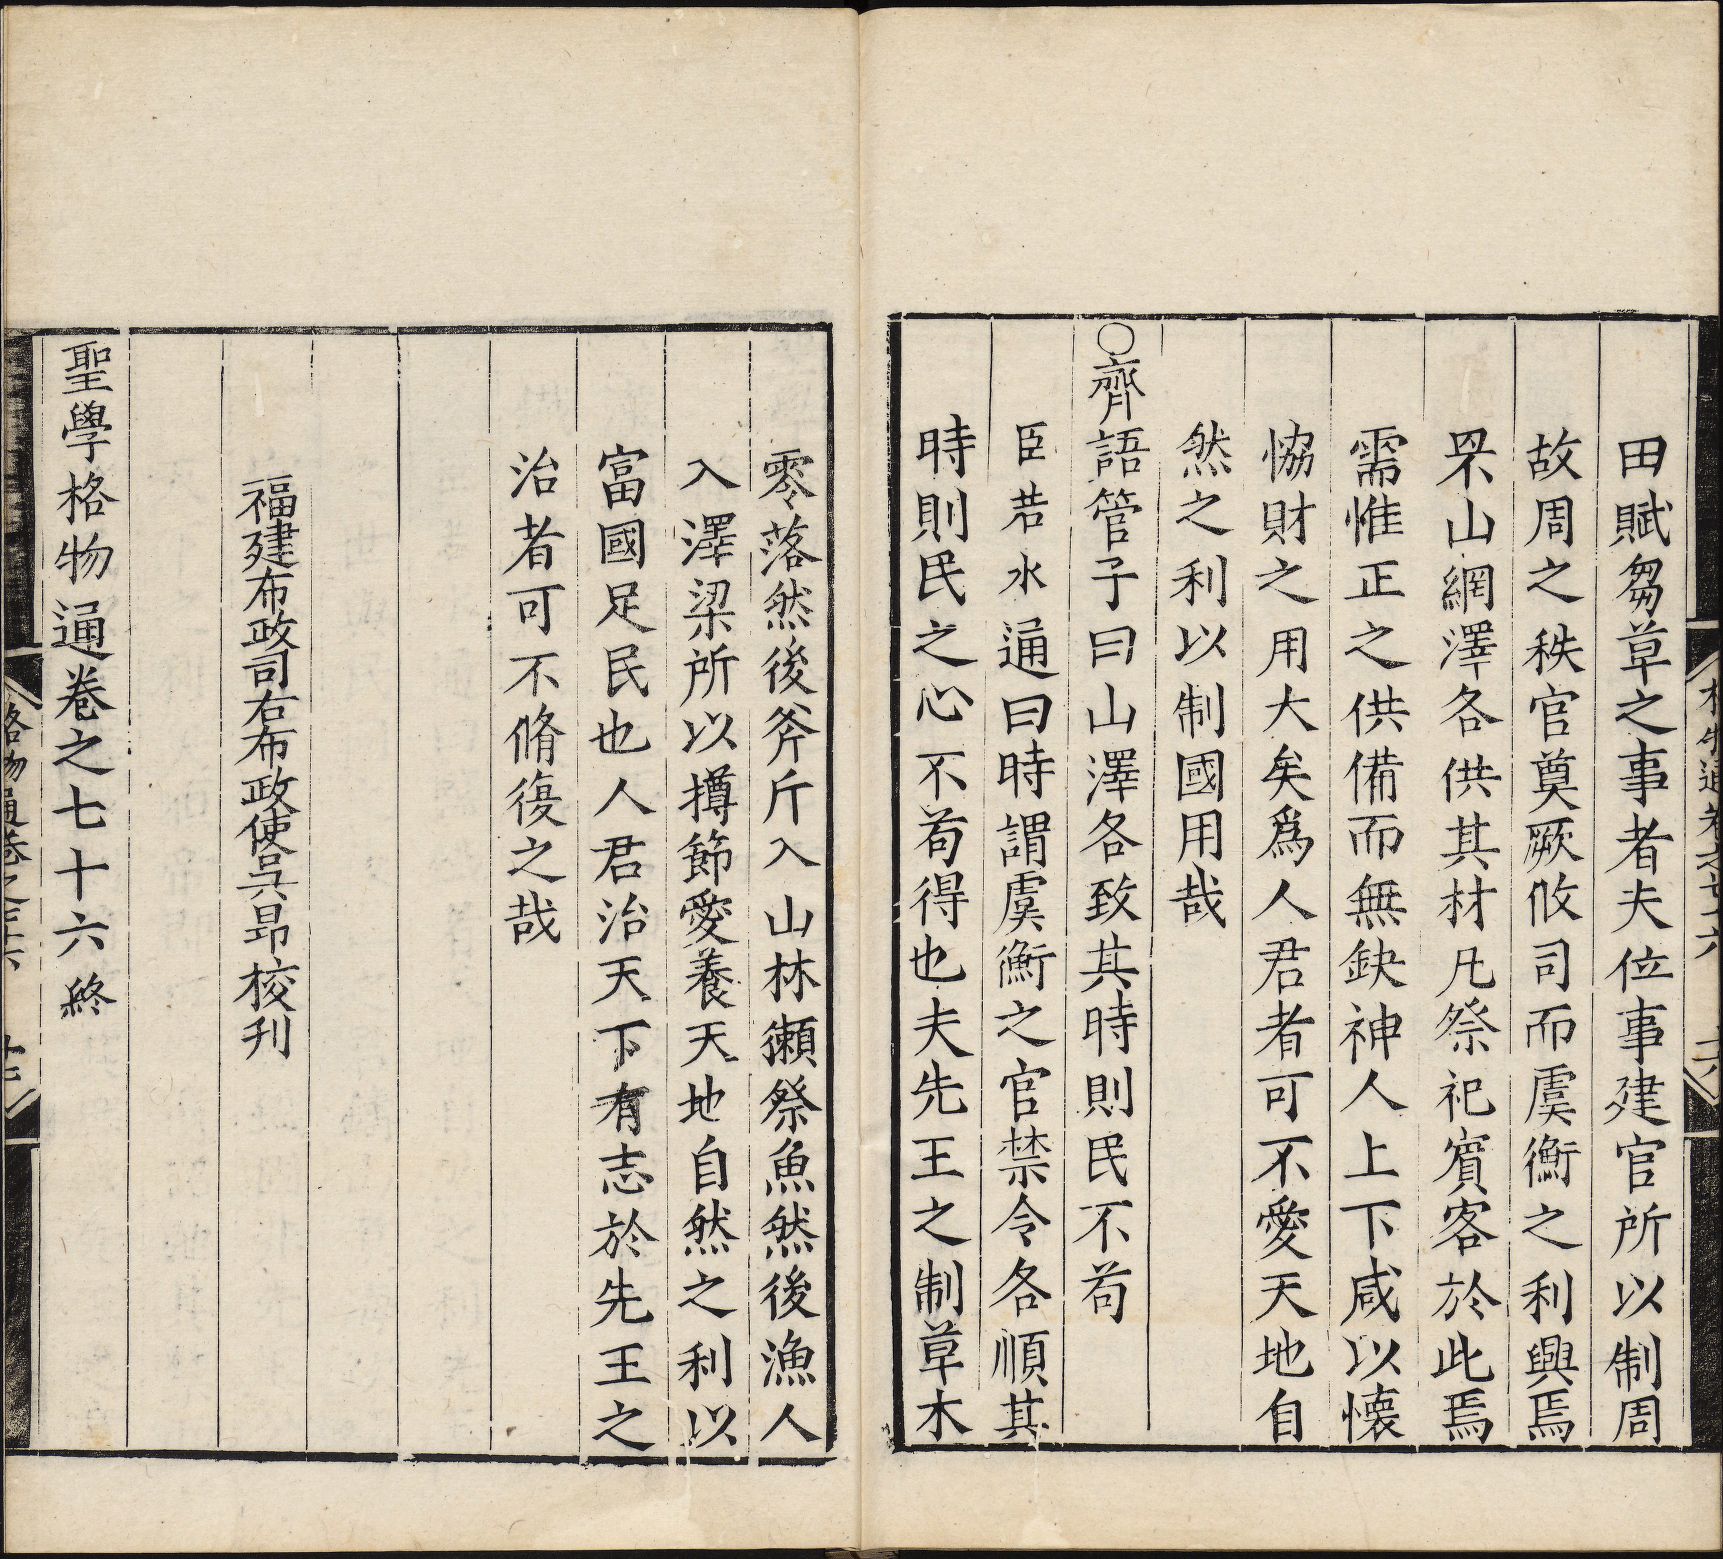 田賦芻草之事者夫位事建官所以制周
故周之秩官奠厥攸司而虞衡之利興焉
罘山網澤各供其材凡祭祀賓客於此焉
需惟正之供備而無缺神人上下咸以懐
恊財之用大矣爲人君者可不愛天地自
然之利以制國用哉
○齊語管子曰山澤各致其時則民不苟
臣若水通曰時謂虞衡之官禁令各順其
時則民之心不苟得也夫先王之制草木
零落然後斧斤入山林獺祭魚然後漁人
入澤梁所以撙節愛養天地自然之利以
富國足民也人君治天下有志於先王之
治者可不脩復之哉
福建布政司右布政使吳昂校刋
聖學格物通卷之七十六終
格物通卷之七十六